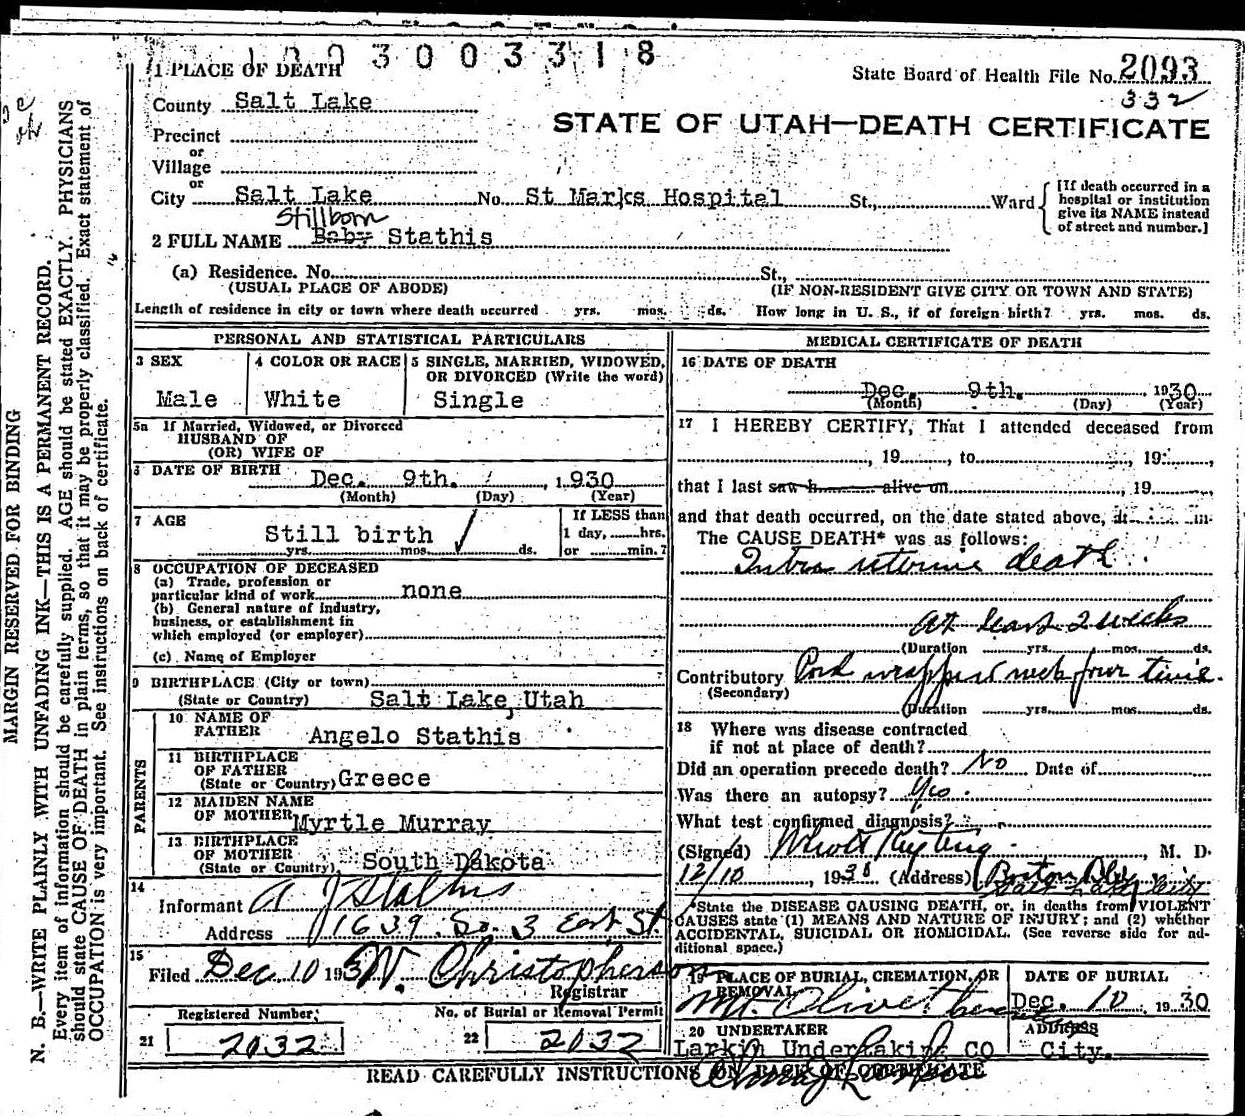 1003003318
1 PLACE OF DEATH
State Board of Health File No. 2093
332
County Salt Lake
STATE OF UTAH—DEATH CERTIFICATE
Precinct
or
Village
or
City Salt Lake No. St Marks Hospital St., Ward
[If death occurred in a hospital or institution give its NAME instead of street and number.]
Stillborn
2 FULL NAME Baby Stathis
(a) Residence. No. St.,
(USUAL PLACE OF ABODE) (IF NON-RESIDENT GIVE CITY OR TOWN AND STATE)
Length of residence in city or town where death occurred yrs. mos. ds. How long in U. S., if of foreign birth? yrs. mos. ds.
PERSONAL AND STATISTICAL PARTICULARS
3 SEX
Male
4 COLOR OR RACE
White
5 SINGLE, MARRIED, WIDOWED,
OR DIVORCED (Write the word)
Single
5a If Married, Widowed, or Divorced
HUSBAND OF
(OR) WIFE OF
6 DATE OF BIRTH Dec. 9th. , 1930
(Month) (Day) (Year)
7 AGE
Still birth
yrs. mos. ds.
If LESS than
1 day, hrs.
or min.?
8 OCCUPATION OF DECEASED
(a) Trade, profession or
particular kind of work none
(b) General nature of industry,
business, or establishment in
which employed (or employer)
(c) Name of Employer
9 BIRTHPLACE (City or town)
(State or Country) Salt Lake, Utah
PARENTS
10 NAME OF
FATHER Angelo Stathis
11 BIRTHPLACE
OF FATHER
(State or Country) Greece
12 MAIDEN NAME
OF MOTHER Myrtle Murray
13 BIRTHPLACE
OF MOTHER
(State or Country) South Dakota
14
Informant A J Stathis
Address 1639 So. 3 East St.
15
Filed Dec 10 193 W. Christopherson
Registrar
Registered Number
21 2032
No. of Burial or Removal Permit
22 2032
MEDICAL CERTIFICATE OF DEATH
16 DATE OF DEATH
Dec. 9th. , 1930
(Month) (Day) (Year)
17 I HEREBY CERTIFY, That I attended deceased from
, 19 , to , 19 ,
that I last saw h alive on , 19 ,
and that death occurred, on the date stated above, at m.
The CAUSE DEATH* was as follows:
Intra uterine death
At least 2 weeks
(Duration yrs. mos. ds.
Contributory Cord wrapped neck four time
(Secondary)
(Duration yrs. mos. ds.
18 Where was disease contracted
if not at place of death?
Did an operation precede death? No Date of
Was there an autopsy? Yes.
What test confirmed diagnosis?
(Signed) , M. D.
12/10 , 1930 (Address) Boston Bldg
Salt Lake City
*State the DISEASE CAUSING DEATH, or, in deaths from VIOLENT
CAUSES state (1) MEANS AND NATURE OF INJURY; and (2) whether
ACCIDENTAL, SUICIDAL OR HOMICIDAL. (See reverse side for ad-
ditional space.)
19 PLACE OF BURIAL, CREMATION, OR
REMOVAL
Mt. Olivet
DATE OF BURIAL
Dec. 10 1930
20 UNDERTAKER
Larkin Undertaking CO
ADDRESS
City.
READ CAREFULLY INSTRUCTIONS ON BACK OF CERTIFICATE
MARGIN RESERVED FOR BINDING
N. B.—WRITE PLAINLY WITH UNFADING INK—THIS IS A PERMANENT RECORD.
Every item of information should be carefully supplied. AGE should be stated EXACTLY. PHYSICIANS
should state CAUSE OF DEATH in plain terms, so that it may be properly classified. Exact statement of
OCCUPATION is very important. See instructions on back of certificate.